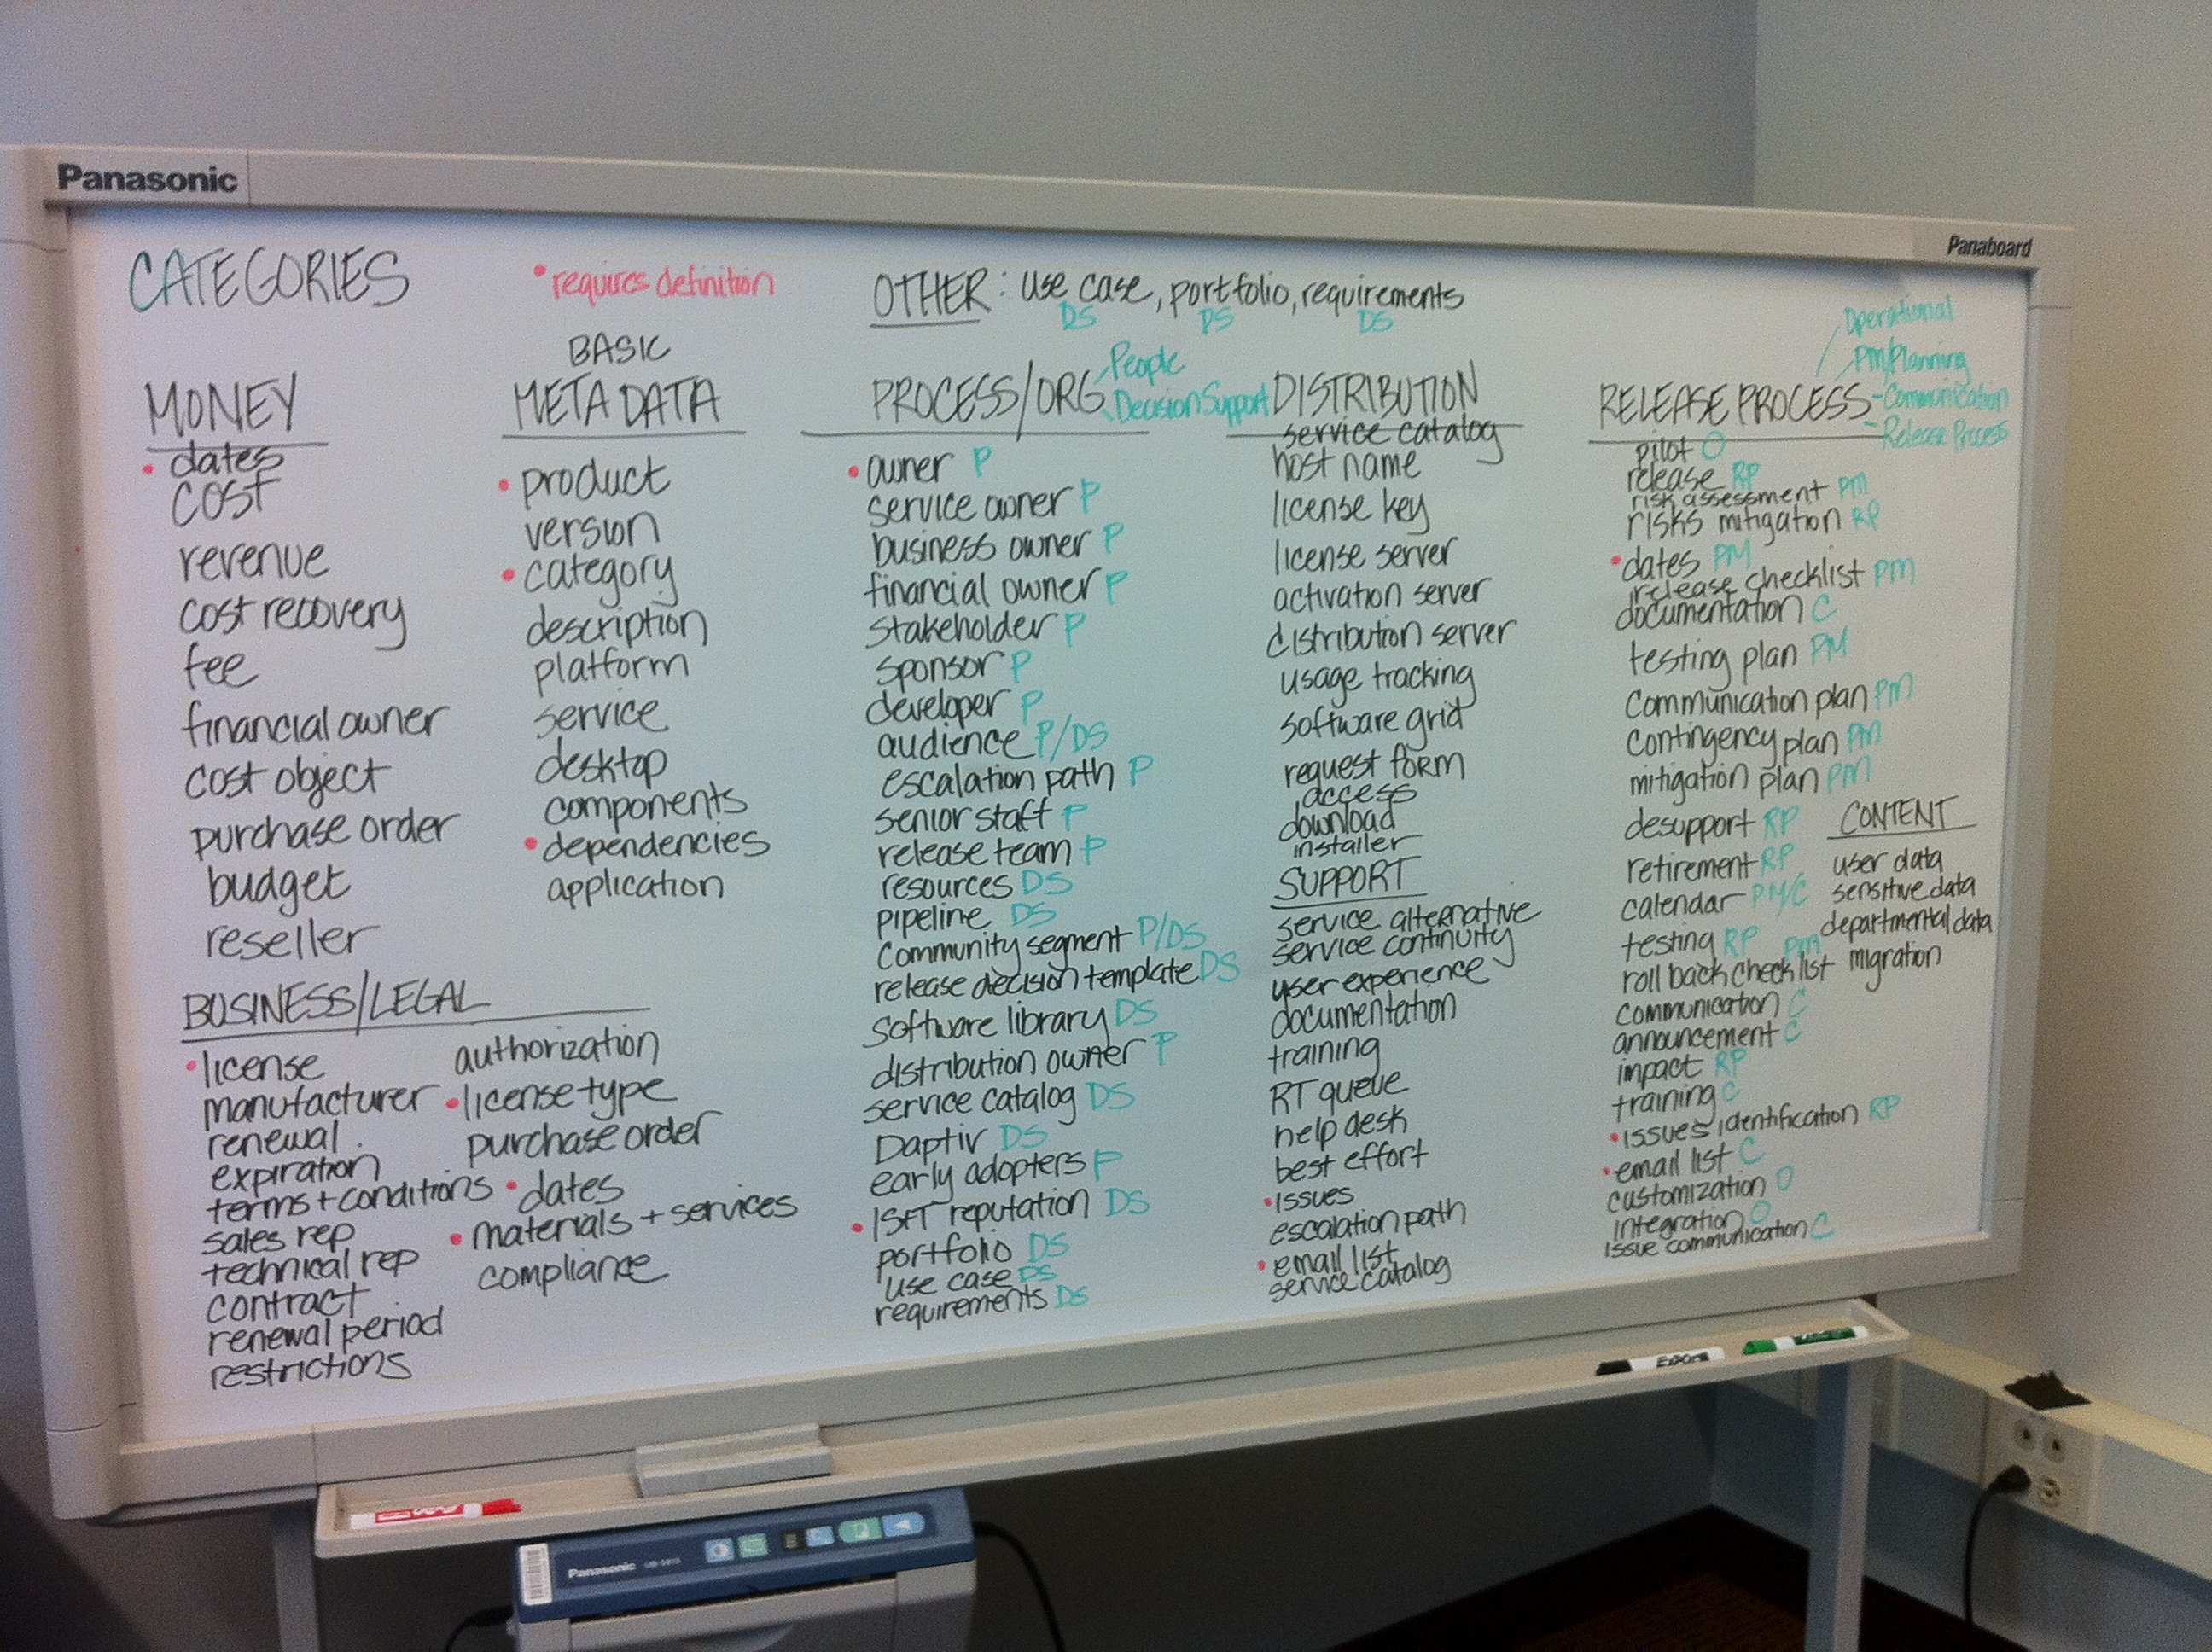 Panasonic
Panaboard
CATEGORIES
• requires definition
OTHER: use case, portfolio, requirements
DS DS DS
MONEY
• dates
cost
revenue
cost recovery
fee
financial owner
cost object
purchase order
budget
reseller
BASIC
META DATA
• product
version
• category
description
platform
service
desktop
components
• dependencies
application
BUSINESS/LEGAL
• license
manufacturer
renewal
expiration
terms + conditions
sales rep
technical rep
contract
renewal period
restrictions
authorization
• license type
purchase order
• dates
• materials + services
compliance
PROCESS/ORG
People
Decision Support
• owner P
service owner P
business owner P
financial owner P
stakeholder P
sponsor P
developer P
audience P/DS
escalation path P
senior staff P
release team P
resources DS
pipeline DS
community segment P/DS
release decision template DS
software library DS
distribution owner P
service catalog DS
Daptiv DS
early adopters P
• IS&T reputation DS
portfolio DS
use case DS
requirements DS
DISTRIBUTION
service catalog
host name
license key
license server
activation server
distribution server
usage tracking
software grid
request form
access
download
installer
SUPPORT
service alternative
service continuity
user experience
documentation
training
RT queue
help desk
best effort
• issues
escalation path
• email list
service catalog
RELEASE PROCESS
Operational
PM/Planning
Communication
Release Process
pilot O
release RP
risk assessment PM
risks mitigation RP
• dates PM
release checklist PM
documentation C
testing plan PM
communication plan PM
contingency plan PM
mitigation plan PM
desupport RP
retirement RP
calendar PM/C
testing RP
roll back checklist PM
communication C
announcement C
impact RP
training C
• issues identification RP
• email list C
customization O
integration O
issue communication C
CONTENT
user data
sensitive data
departmental data
migration
EXPO
Panasonic